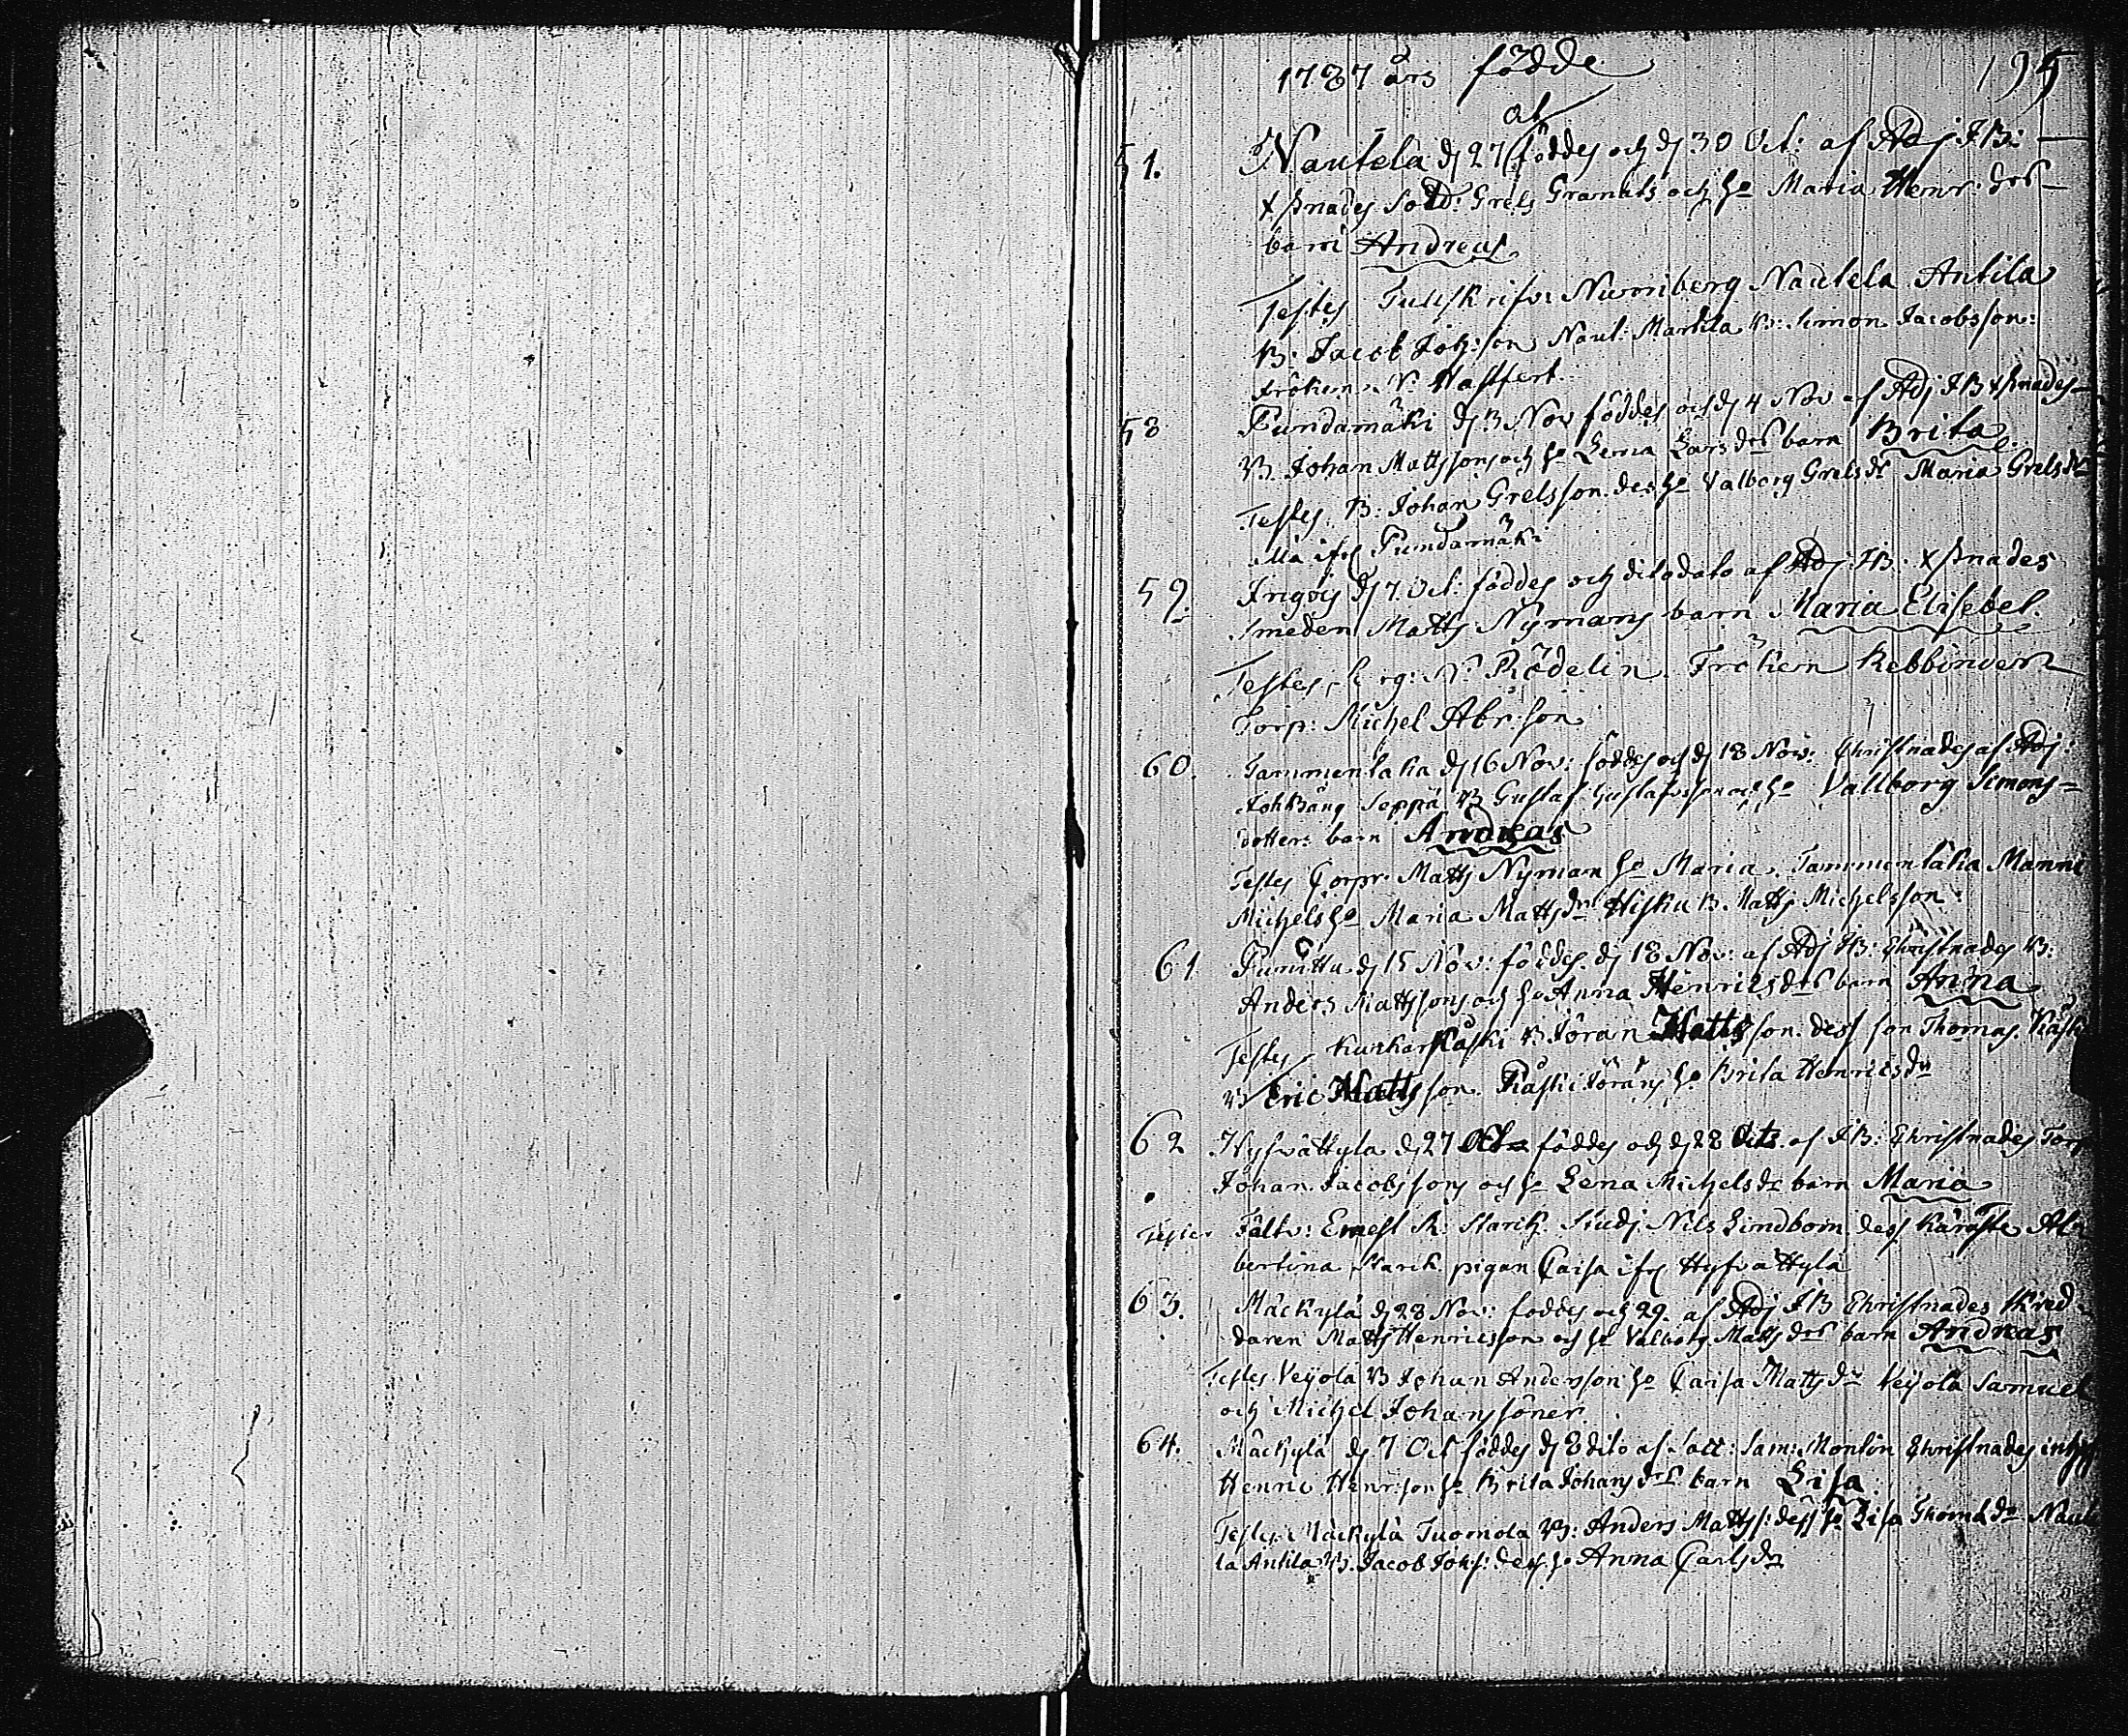 1787 års födde
195
51. Nautela d 27 föddes och d 30 Oct: af Adj J B:
Oct
xstnades Sold: Grels Granats och ho Maria Henr: drs
barn Andreas
Testes Nurmberg Nautela Antila
B: Jacob Joh:son Naut: Martila B: Simon Jacobsson:
fröken
58 Pundamäki d 3 Nov föddes och d 4 Nov af Adj J B xstnades
B. Johan Mattssons och ho Lena Larsdrs barn Brita
Testes: B: Johan Grelsson. des ho Valborg Grelsdr Maria Grelsdr
Pundamäki
59. Ingois d 7 Oct: föddes och dito dato af Adj: J B: xstnades
Smeden Matts Nymans barn Maria Elisebet.
Testes Rödelin Fröken Rebbinder
Torp: Michel Abr:son
60. Tammenlaka d 16 Nov: föddes och d 18 Nov: Christnades af Adj:
Seppä B Gustaf Gustafssons och ho Vallborg Simons=
dotter: barn Andreas
Testes Corpr: Matts Nyman ho Maria. Tammenlaka Manni
Michels ho Maria Mattsdr Hisku B. Matts Michelsson.
61 Punittu d 15 Nov: föddes. d 18 Nov: af Adj J B: Christnades B:
Anders Mattssons och ho Anna Henricsdrs barn Anna
Testes Kunkarkäski B Jöran Mattsson. dess son Thomas. Käski
B Eric Mattsson. Käski Jörans ho Brita Henricsdr
62 Hyfvättylä d 27 Oct föddes och d 28 dito af J B: Christnades Torp
Johan Jacobssons och ho Lena Michelsdr barn Maria
Testes Fältv: Ernest Starck Studj Nils Lindbom dess Käresta Al
bertina Starck pigan Caisa ifr Hyfvättylä
63. Mäckylä d 28 Nov: föddes och 29. af Adj J B Christnades Skred
daren Matts Henricsson och ho Valborg Mattsdrs barn Andreas
Testes Veijola B Johan Andersson ho Caisa Mattsdr Veijola Samuel
och Michel Johanssöner
64. Mäckylä d 7 Oct föddes d 8 dito af Sam: Monlin Christnades
Henric Henr:son ho Brita Johansdrs barn Lisa
Testes Mäckylä Tuomola B: Anders Matts: dess ho Lisa Thomædr Naut
la Antila B. Jacob Johs: dess ho Anna Carlsdr